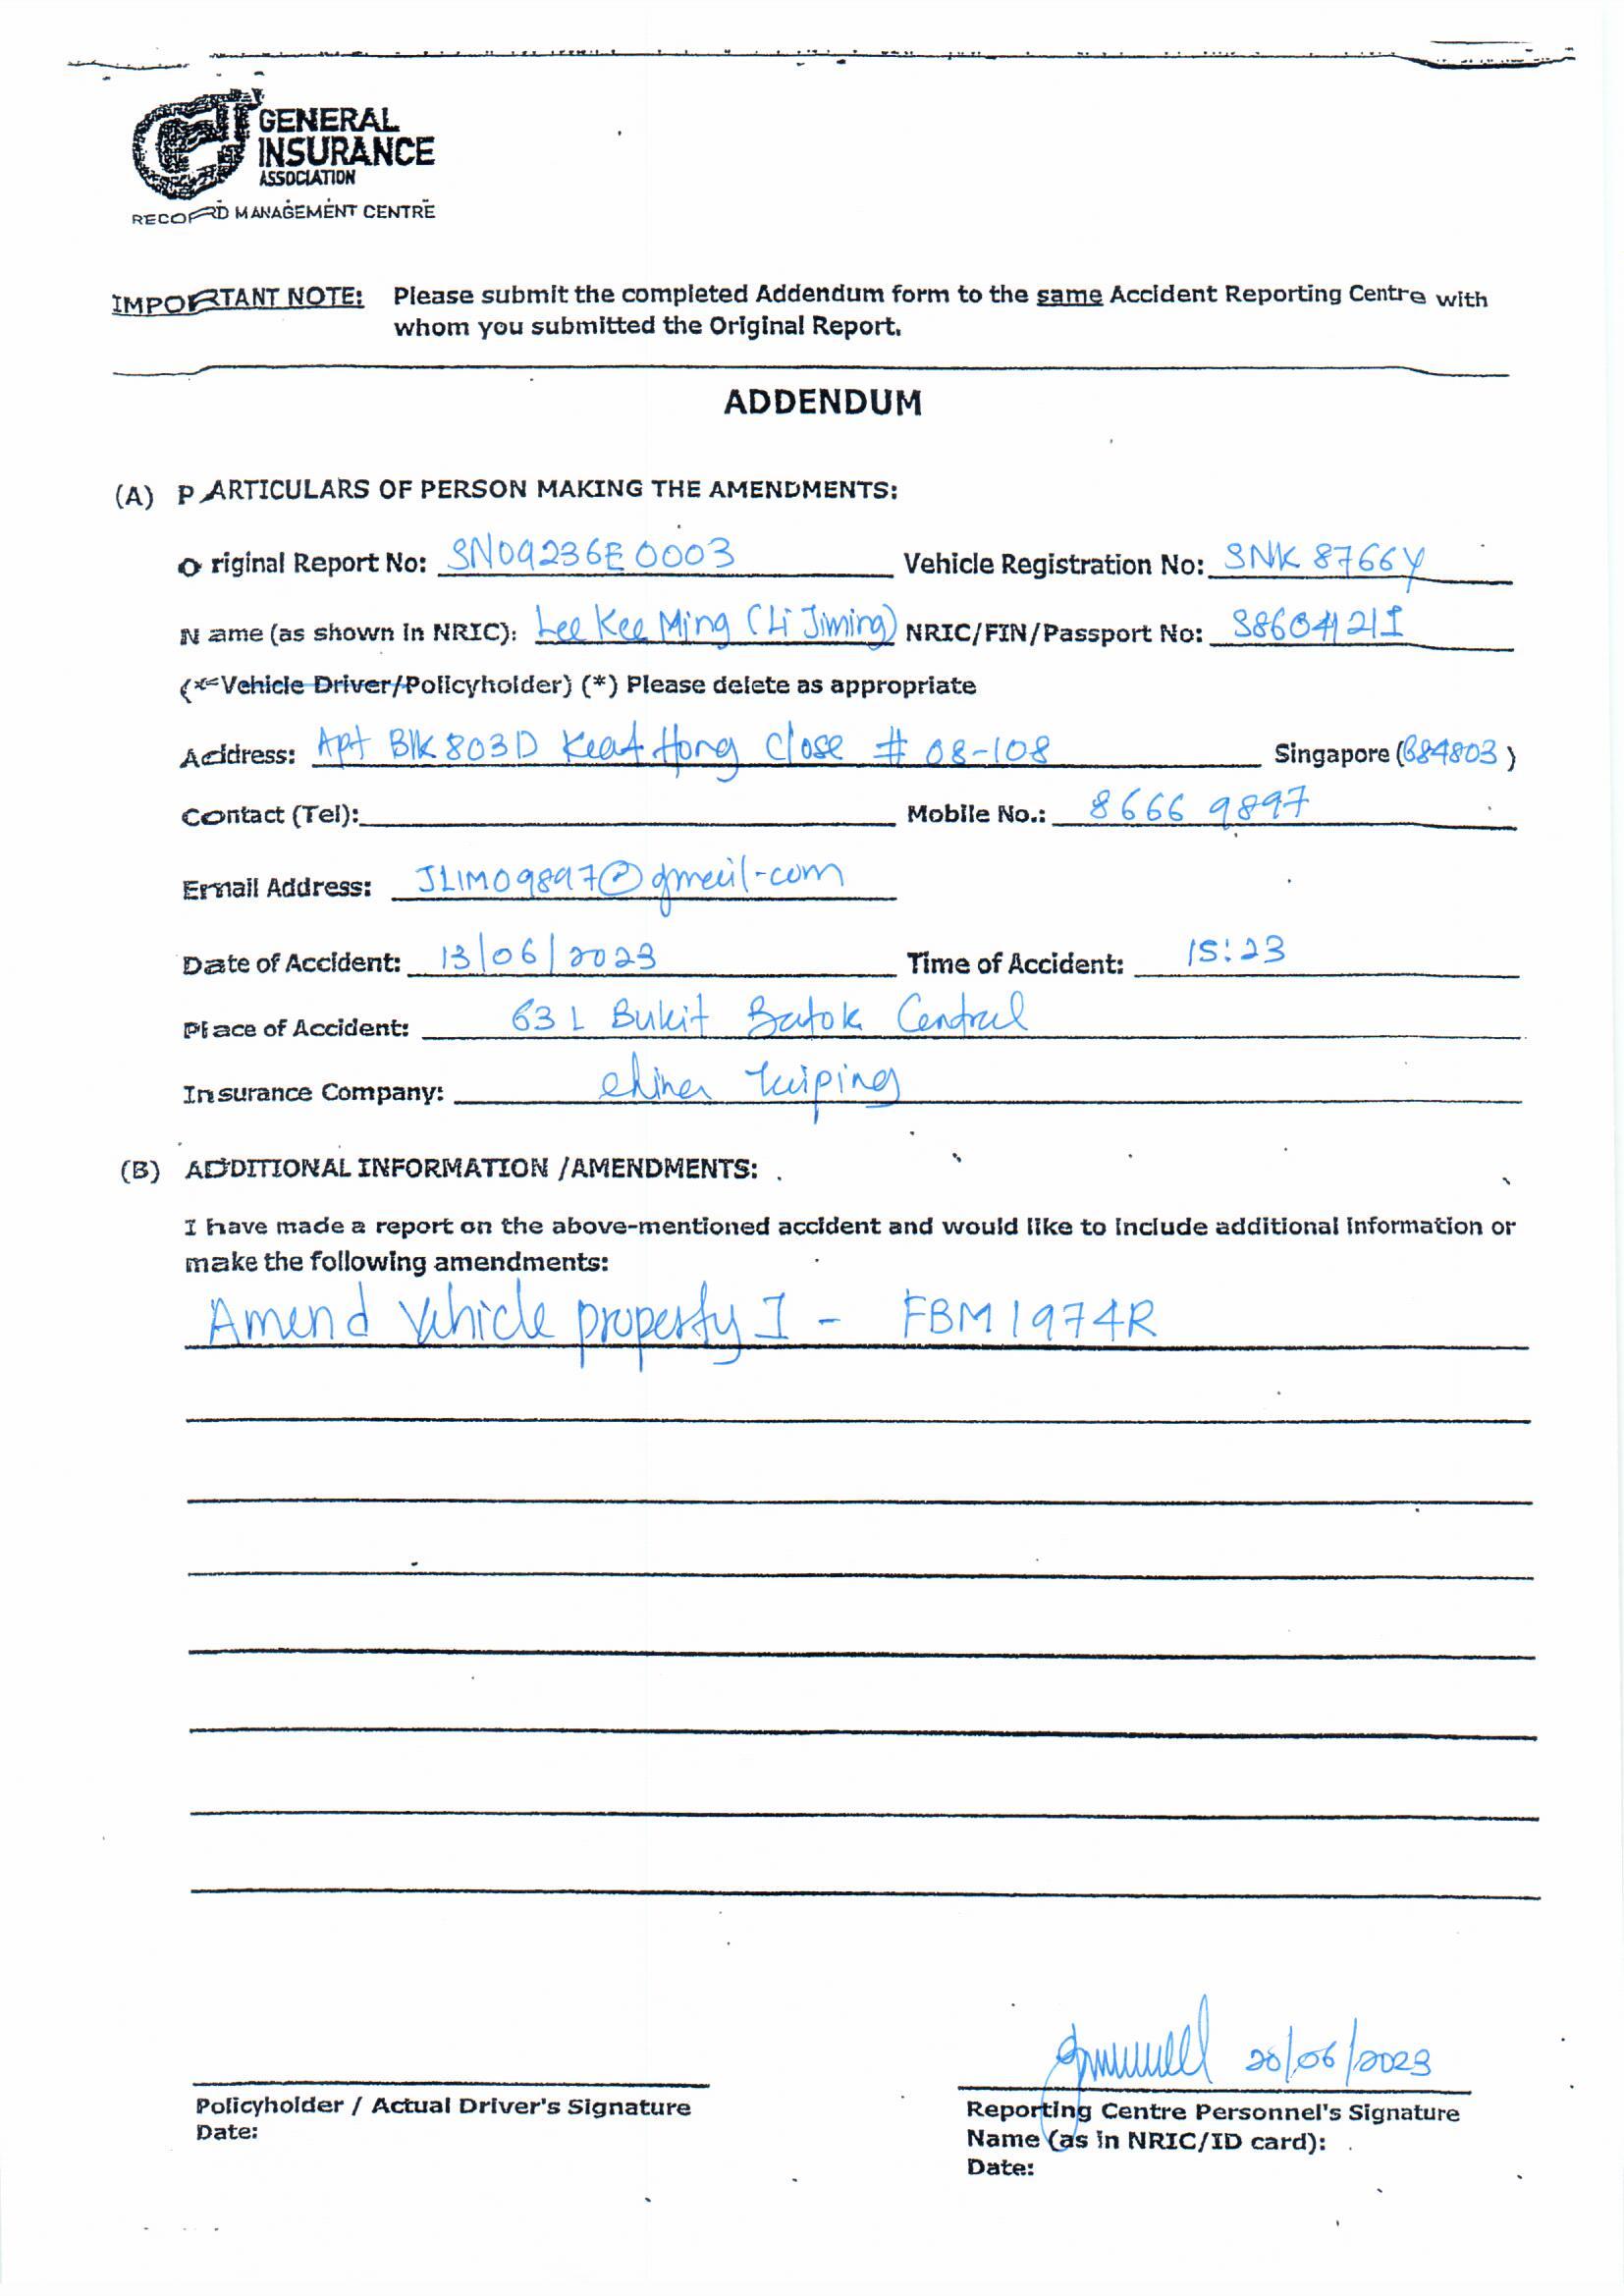 GENERAL
INSURANCE
ASSOCIATION
RECORD MANAGEMENT CENTRE
IMPORTANT NOTE: Please submit the completed Addendum form to the same Accident Reporting Centre with
whom you submitted the Original Report.
ADDENDUM
(A) PARTICULARS OF PERSON MAKING THE AMENDMENTS:
Original Report No: SN09236E0003 Vehicle Registration No: SNK 8766Y
Name (as shown in NRIC): Lee Kee Ming (Li Jiming) NRIC/FIN/Passport No:
(*Vehicle Driver/Policyholder) (*) Please delete as appropriate
Address: Apt Blk 803D Keat Hong Close # 08-108 Singapore (684803)
Contact (Tel): Mobile No.: 8666 9897
Email Address: JLIM09897@gmail.com
Date of Accident: 13/06/2023 Time of Accident: 15:23
Place of Accident: 63 L Bukit Batok Central
Insurance Company: China Taiping
(B) ADDITIONAL INFORMATION /AMENDMENTS:
I have made a report on the above-mentioned accident and would like to include additional information or
make the following amendments:
Amend Vehicle property I - FBM1974R
20/06/2023
Policyholder / Actual Driver's Signature Reporting Centre Personnel's Signature
Date: Name (as in NRIC/ID card):
Date: